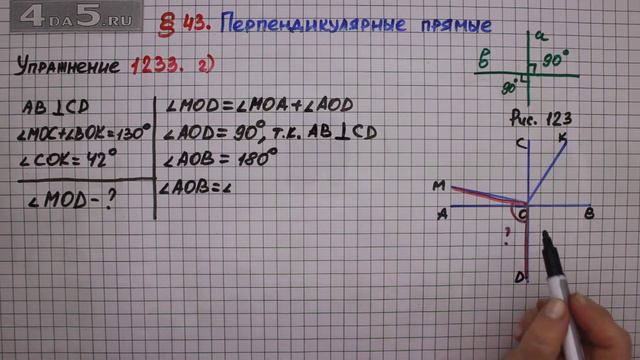 4DA5.RU
§ 43. Перпендикулярные прямые
Упражнение 1233. г)
AB⊥CD
∠MOC+∠BOK=130°
∠COK=42°
∠MOD-?
∠MOD=∠MOA+∠AOD
∠AOD=90°, т.к. AB⊥CD
∠AOB=180°
∠AOB=∠
a
b
90°
90°
Рис. 123
C
K
M
A
O
B
?
D